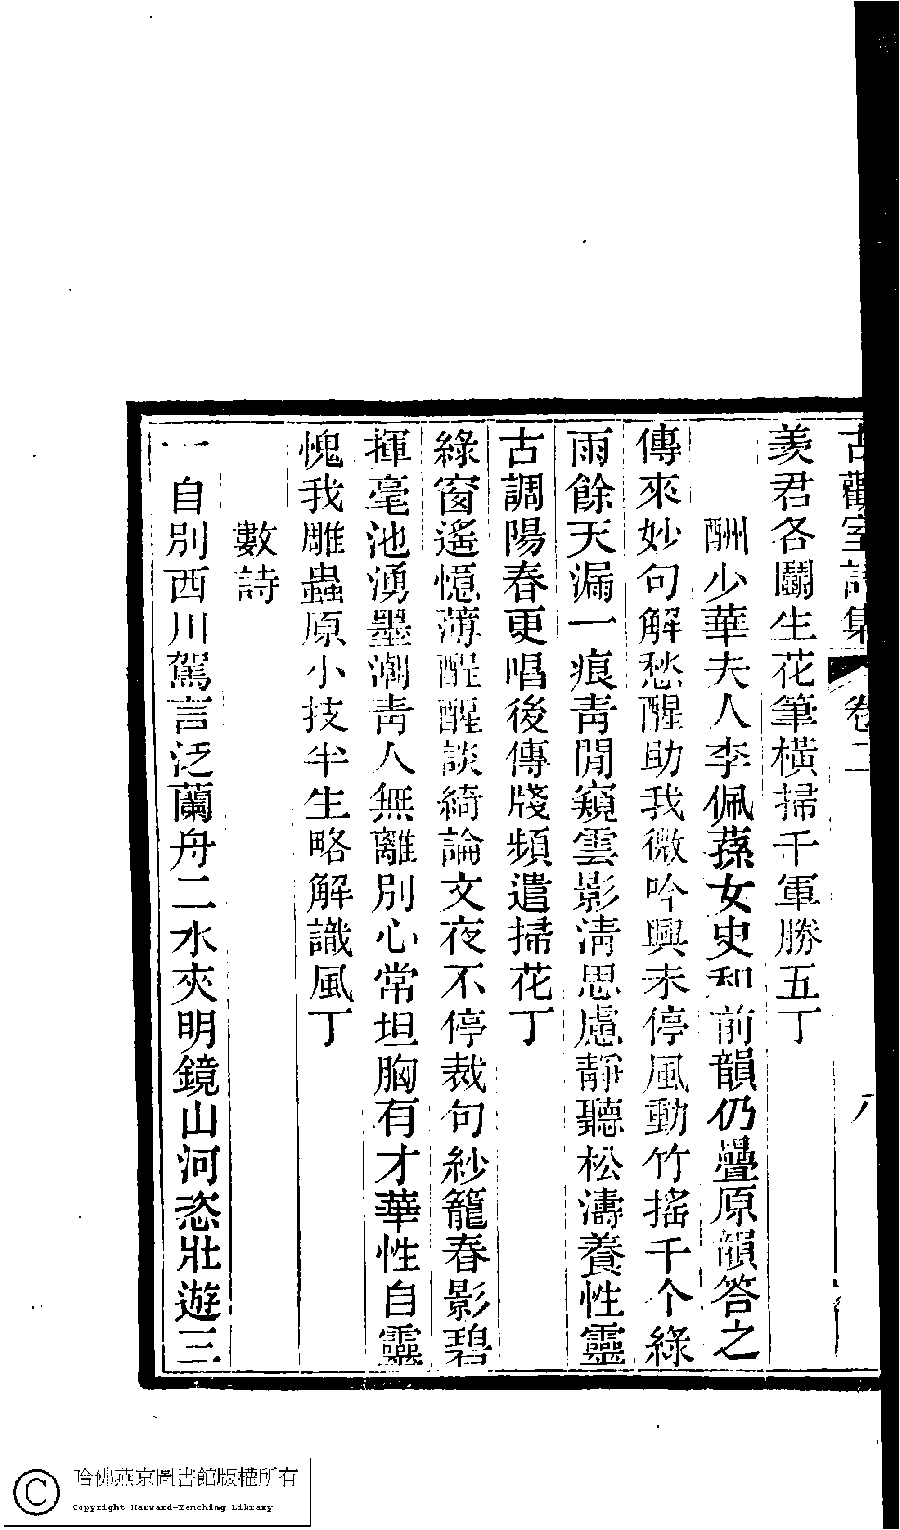 古歡室詩集 卷二 八
羨君各鬭生花筆橫掃千軍勝五丁
酬少華夫人李佩蓀女史和前韻仍疊原韻答之
傳來妙句解愁醒助我微吟興未停風動竹搖千个綠
雨餘天漏一痕靑閒窺雲影淸思慮靜聽松濤養性靈
古調陽春更唱後傳牋頻遣掃花丁
綠窗遙憶薄醒醒談綺論文夜不停裁句紗籠春影碧
揮毫池湧墨潮靑人無離別心常坦胸有才華性自靈
愧我雕蟲原小技半生略解識風丁
數詩
一自別西川駕言泛蘭舟二水夾明鏡山河恣壯遊三
哈佛燕京圖書館版權所有
Copyright Harvard-Yenching Library